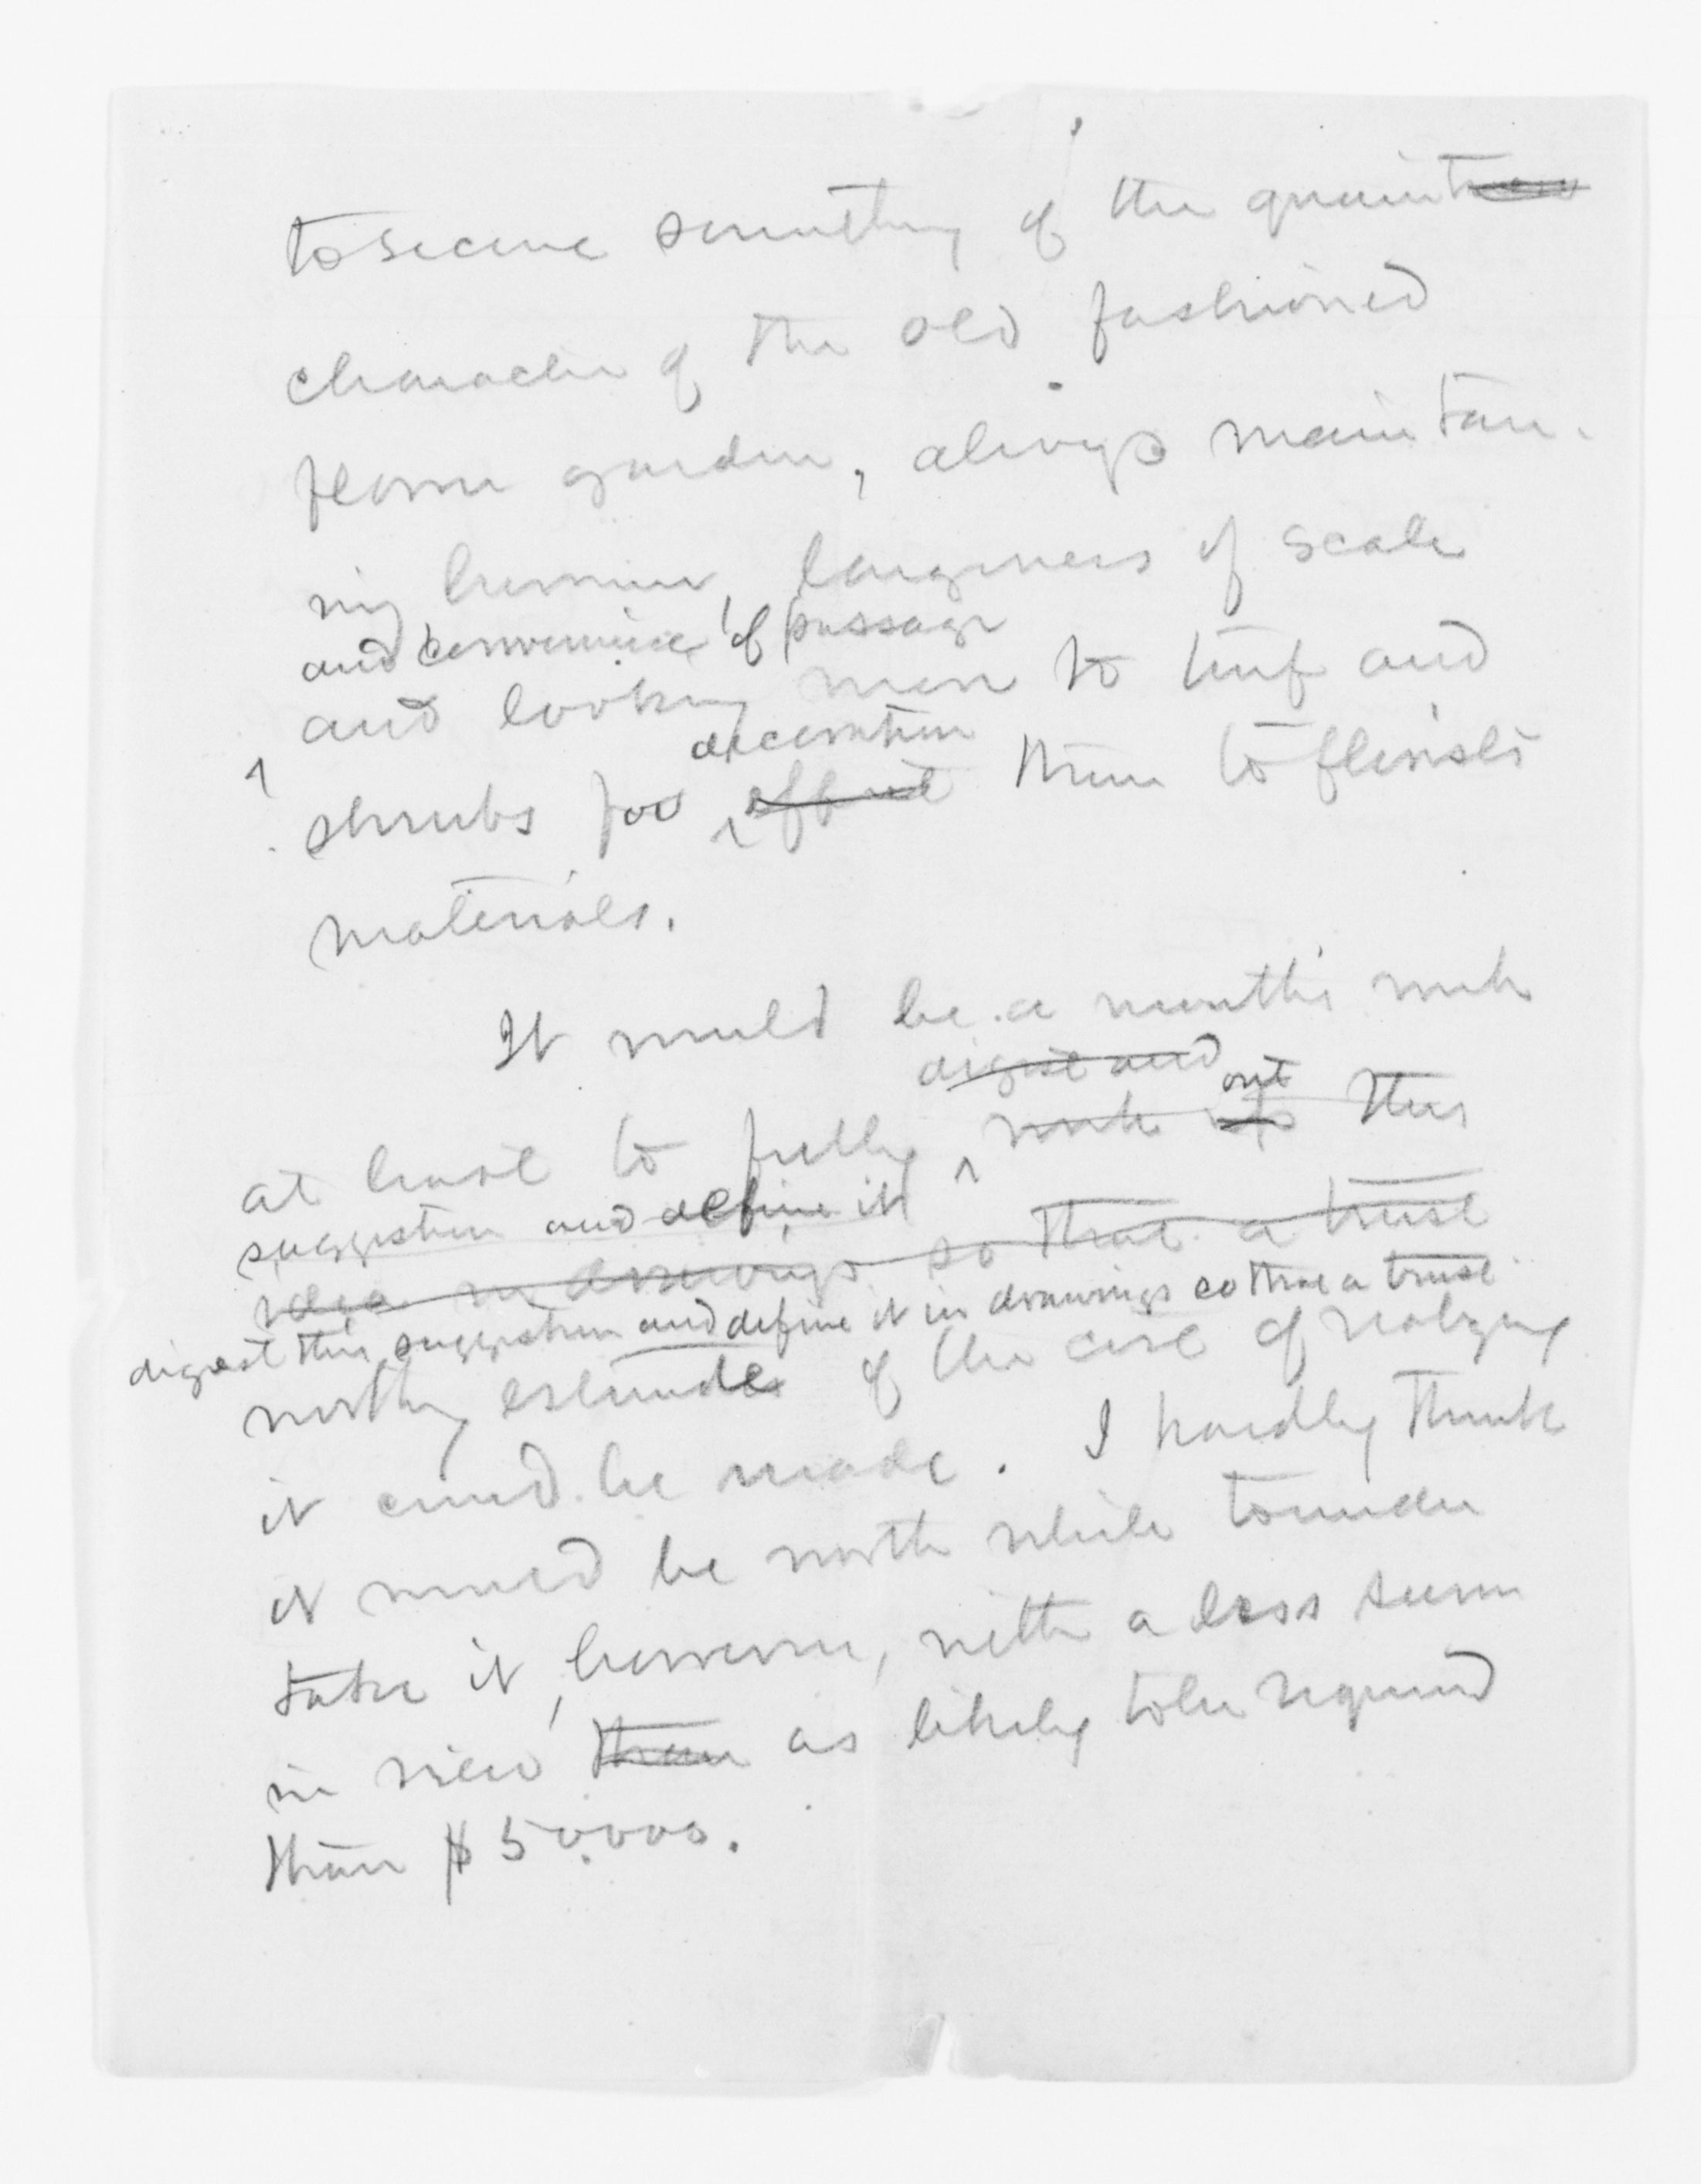 to secure something of the quaintness
character of the old fashioned
flower garden, always maintain-
ing however, largeness of scale
and convenience of passage
and looking more to turf and
decoration
shrubs for effect than to florist's
materials.
It would be a month's work
digest and out
at least to fully work up this
suggestion and define it
idea in drawings so that a trust
digest this suggestion and define it in drawings so that a trust
worthy estimate of the cost of realizing
it could be made. I hardly think
it would be worth while to under
take it, however, with a less sum
in view than as likely to be required
than $50.000.